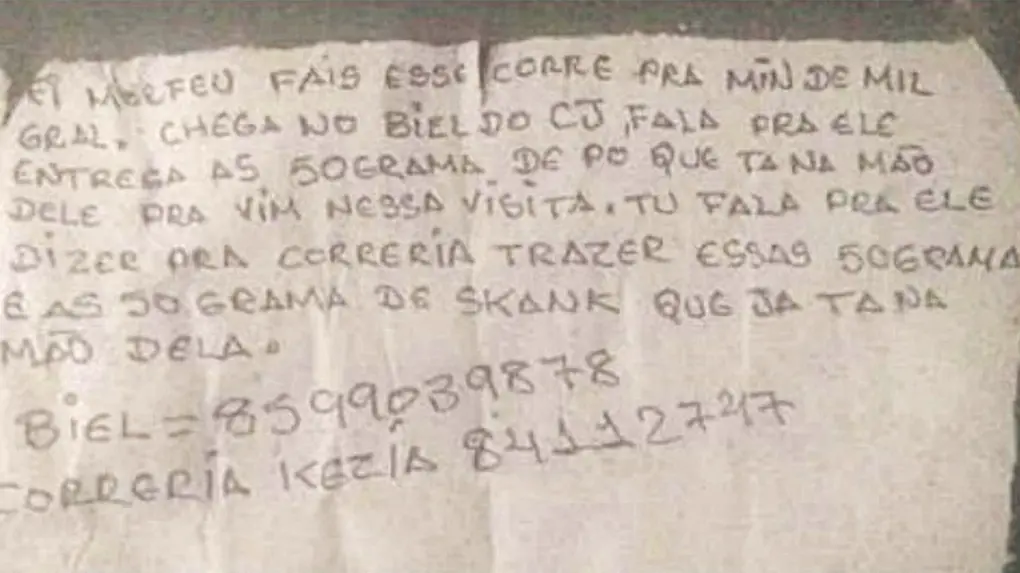 EI MORFEU FAIS ESSE CORRE PRA MIN DE MIL
GRAL. CHEGA NO BIEL DO CJ, FALA PRA ELE
ENTREGA AS 50GRAMA DE PO QUE TA NA MÃO
DELE PRA VIM NESSA VISITA. TU FALA PRA ELE
DIZER PRA CORRERIA TRAZER ESSAS 50GRAMA
E AS 50 GRAMA DE SKANK QUE JA TA NA
MÃO DELA.
BIEL = 8599039878
CORRERIA KEZIA 84112747